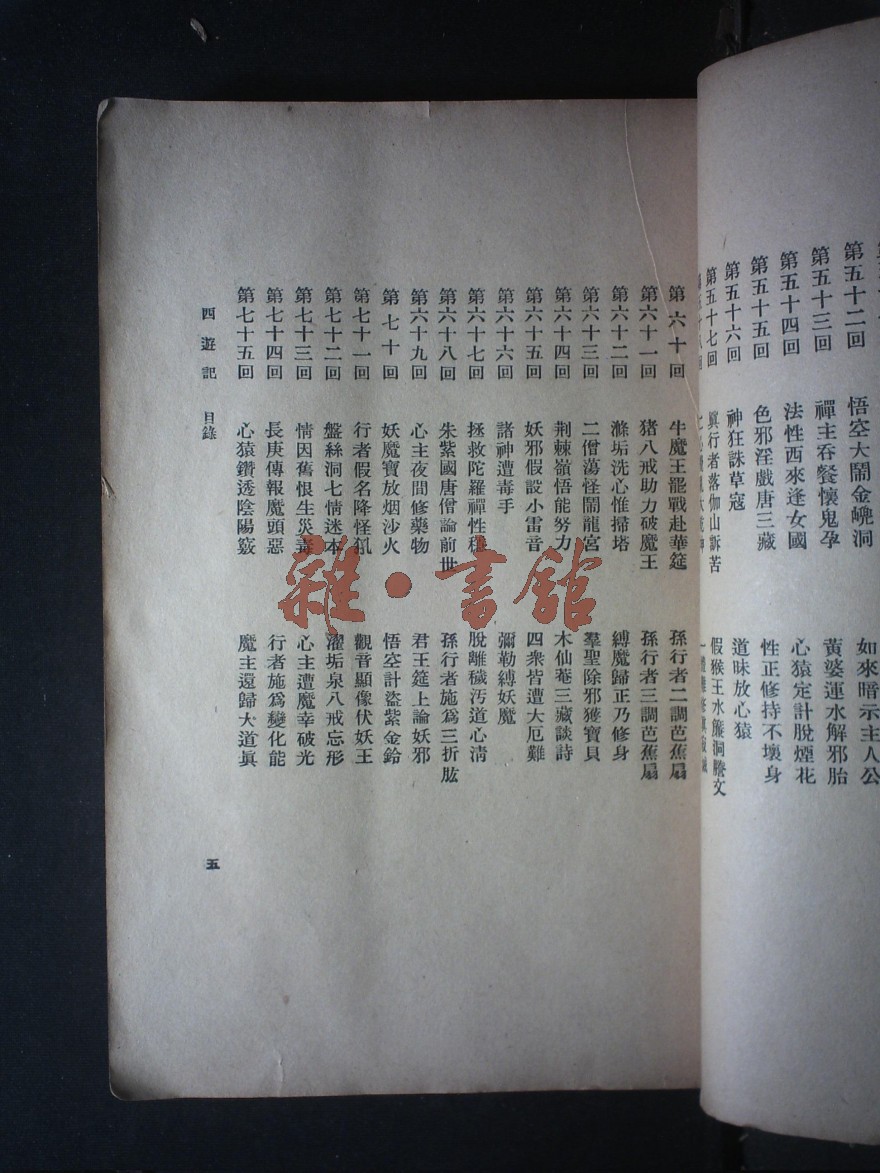 第五十二回 悟空大鬧金㠓洞 如來暗示主人公
第五十三回 禪主吞餐懷鬼孕 黃婆運水解邪胎
第五十四回 法性西來逢女國 心猿定計脫煙花
第五十五回 色邪淫戲唐三藏 性正修持不壞身
第五十六回 神狂誅草寇 道昧放心猿
第五十七回 眞行者落伽山訴苦 假猴王水簾洞謄文
第六十回 牛魔王罷戰赴華筵 孫行者二調芭蕉扇
第六十一回 猪八戒助力破魔王 孫行者三調芭蕉扇
第六十二回 滌垢洗心惟掃塔 縛魔歸正乃修身
第六十三回 二僧蕩怪鬧龍宮 羣聖除邪獲寶貝
第六十四回 荆棘嶺悟能努力 木仙庵三藏談詩
第六十五回 妖邪假設小雷音 四衆皆遭大厄難
第六十六回 諸神遭毒手 彌勒縛妖魔
第六十七回 拯救陀羅禪性穩 脫離穢汚道心淸
第六十八回 朱紫國唐僧論前世 孫行者施爲三折肱
第六十九回 心主夜間修藥物 君王筵上論妖邪
第七十回 妖魔寶放烟沙火 悟空計盜紫金鈴
第七十一回 行者假名降怪犼 觀音顯像伏妖王
第七十二回 盤絲洞七情迷本 濯垢泉八戒忘形
第七十三回 情因舊恨生災毒 心主遭魔幸破光
第七十四回 長庚傳報魔頭惡 行者施爲變化能
第七十五回 心猿鑽透陰陽竅 魔主還歸大道眞
西遊記 目錄
五
雜·書館